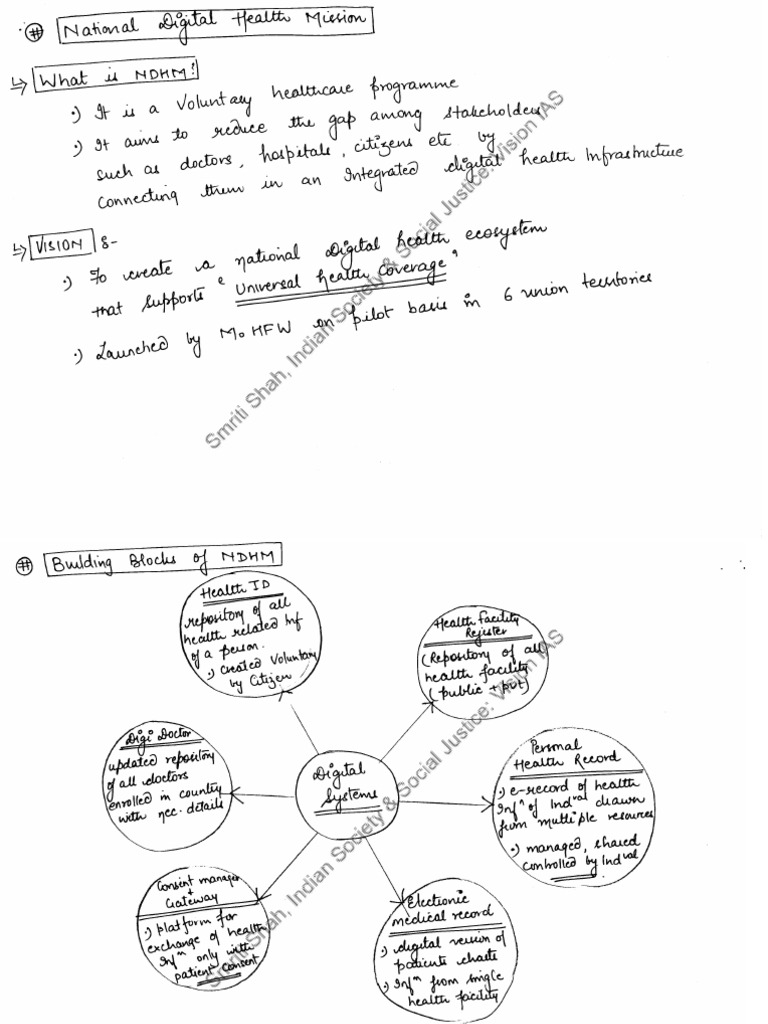 # National Digital Health Mission
↳ What is NDHM?
•) It is a Voluntary healthcare programme
•) It aims to reduce the gap among stakeholders
such as doctors, hospitals, citizens etc by
connecting them in an Integrated digital health Infrastructure
↳ VISION :-
•) To create a national Digital health ecosystem
that supports "Universal health coverage"
•) Launched by MoHFW on pilot basis in 6 union territories
Smriti Shah, Indian Society & Social Justice: Vision IAS
# Building Blocks of NDHM
Health ID
repository of all
health related Inf
of a person.
•) Created Voluntary
by Citizen
Health Facility
Register
(Repository of all
health facility
(public + pvt)
Digi Doctor
updated repository
of all doctors
enrolled in country
with nec. details
Digital
Systems
Personal
Health Record
•) e-record of health
Infⁿ of Indᵛᵃˡ drawn
from multiple resources
•) managed, shared
controlled by Indᵛᵃˡ
Consent manager
+
Gateway
•) platform for
exchange of health
Infⁿ only with
patient consent
Electionic
medical record
•) digital version of
patients charts
•) Infⁿ from single
health facility
Smriti Shah, Indian Society & Social Justice: Vision IAS